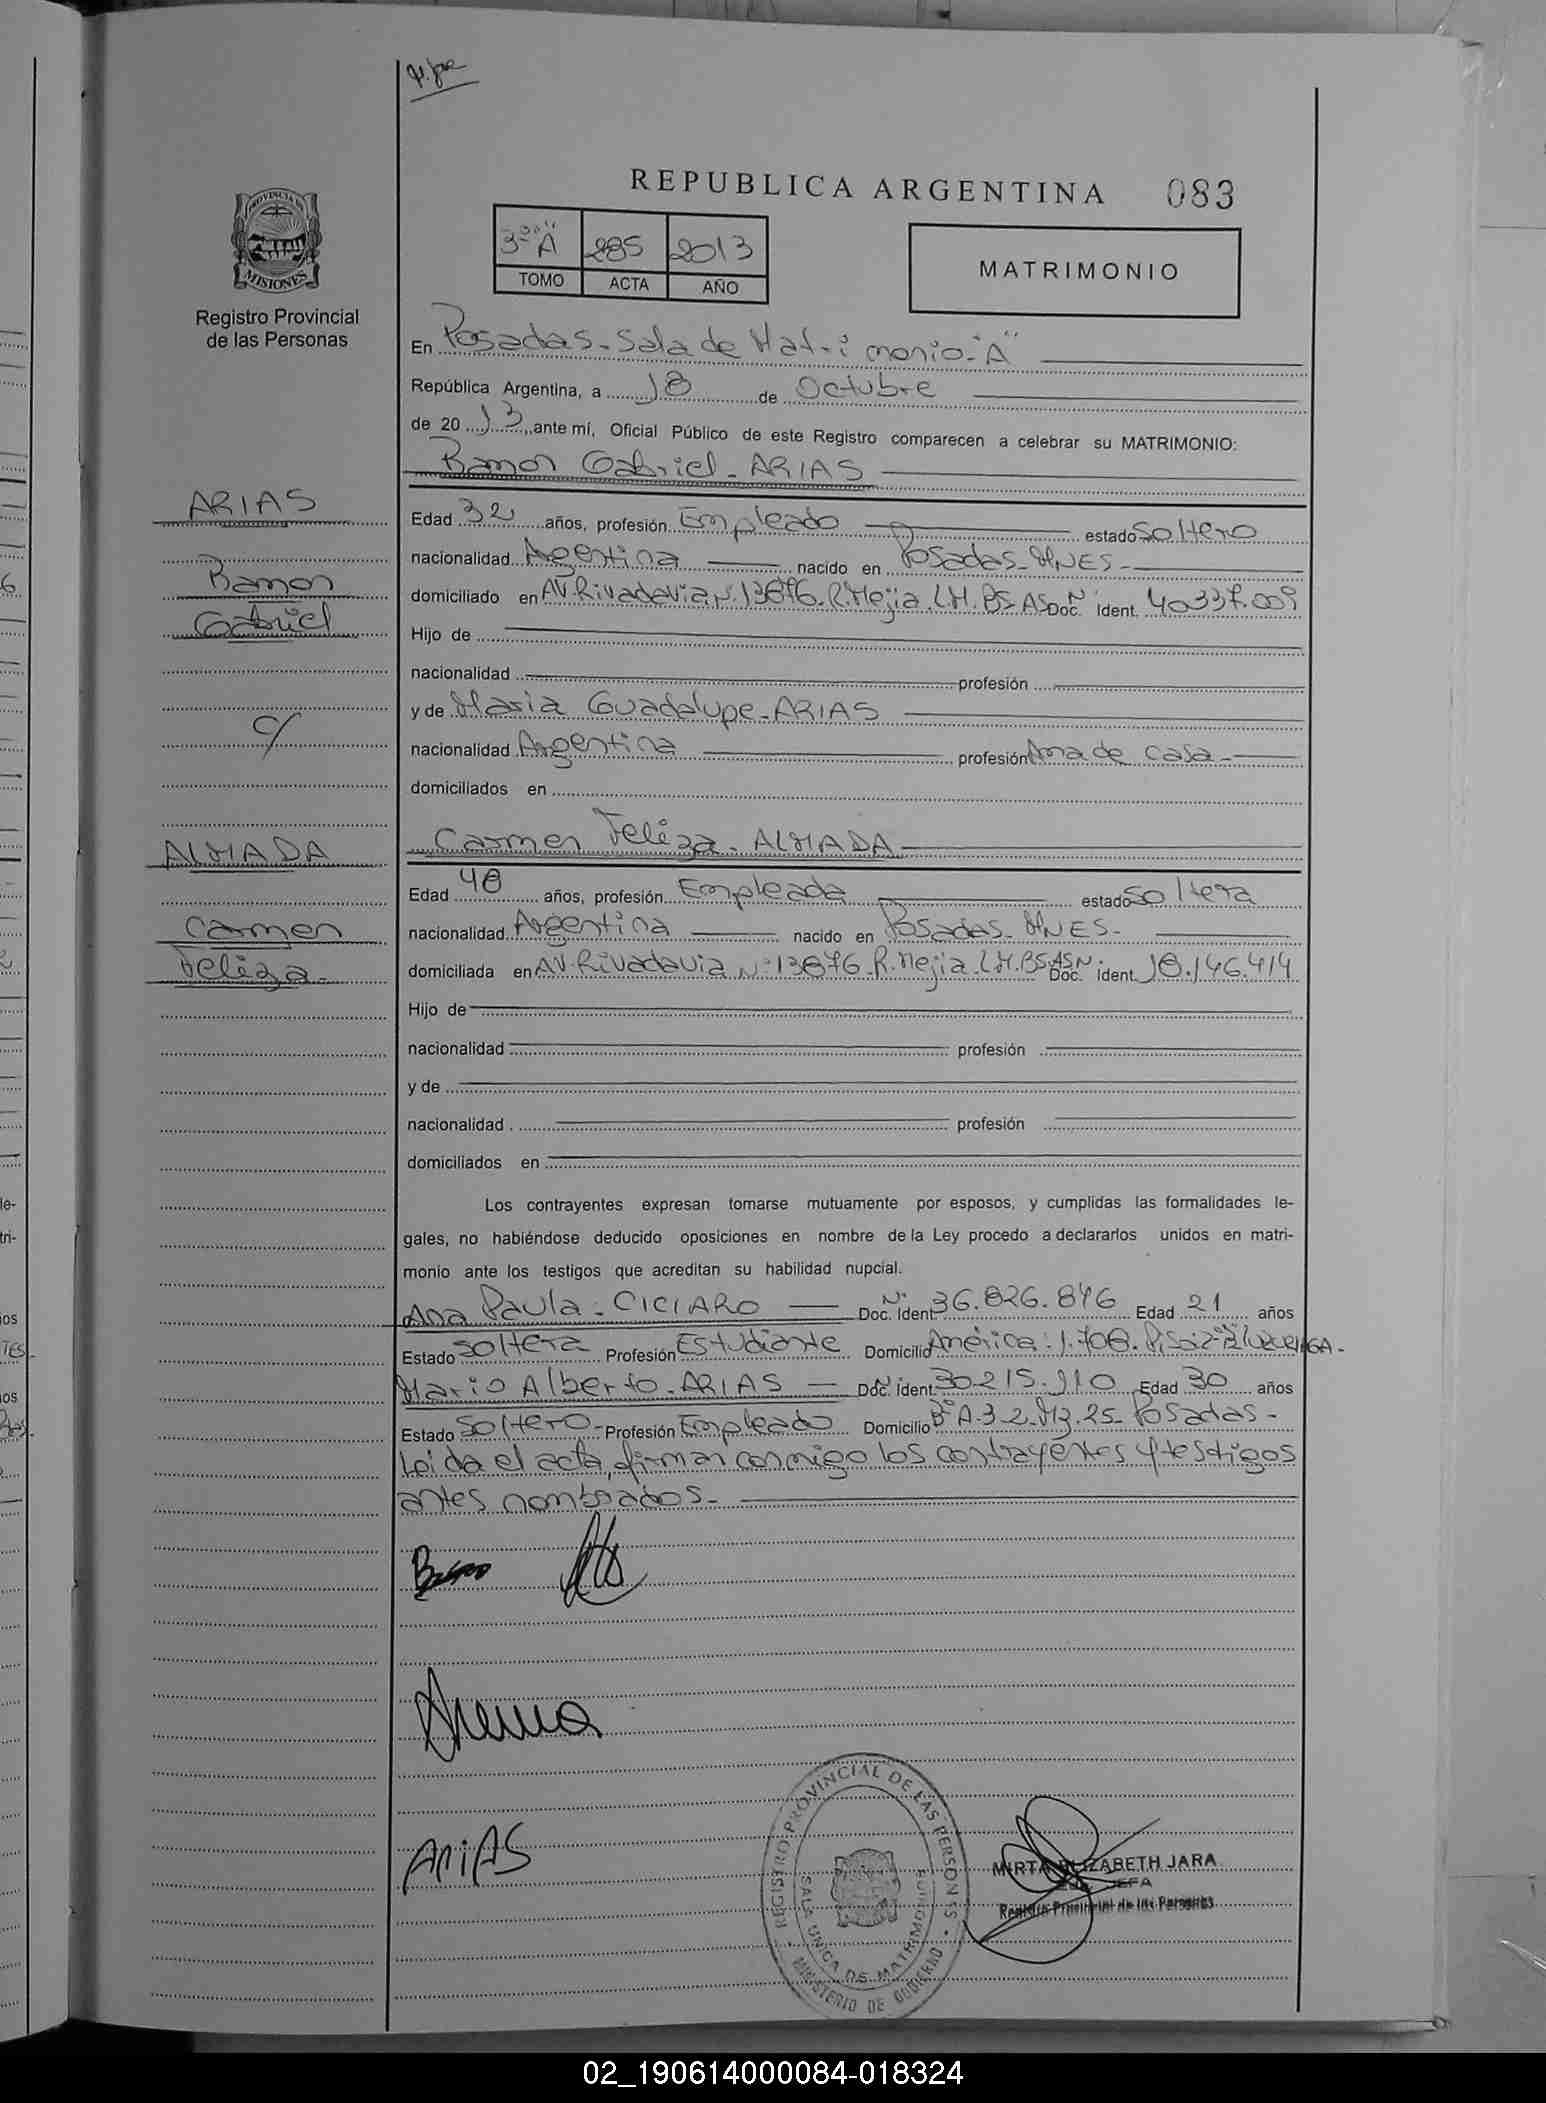 REPUBLICA ARGENTINA 083
PROVINCIA DE MISIONES
Registro Provincial
de las Personas
3º "A" 285 2013
TOMO ACTA AÑO
MATRIMONIO
En Posadas - Sala de Matrimonio - "A"
República Argentina, a 18 de Octubre
de 2013, ante mí, Oficial Público de este Registro comparecen a celebrar su MATRIMONIO:
Ramon Gabriel - ARIAS
ARIAS
Ramon
Gabriel
c/
ALMADA
Carmen
Feliza -
Edad 32 años, profesión Empleado estado soltero
nacionalidad Argentina nacido en Posadas - MNES -
domiciliado en AV. Rivadavia Nº 13876 - R. Mejia - L.M. BS. AS Doc. Nº Ident. 40.337.009
Hijo de
nacionalidad profesión
y de Maria Guadalupe - ARIAS
nacionalidad Argentina profesión Ama de casa -
domiciliados en
Carmen Feliza - ALMADA
Edad 48 años, profesión Empleada estado soltera
nacionalidad Argentina nacido en Posadas - MNES -
domiciliada en AV. Rivadavia Nº 13876 - R. Mejia - L.M. BS. AS Nº Doc. ident. 18.146.414
Hijo de
nacionalidad profesión
y de
nacionalidad profesión
domiciliados en
Los contrayentes expresan tomarse mutuamente por esposos, y cumplidas las formalidades le-
gales, no habiéndose deducido oposiciones en nombre de la Ley procedo a declararlos unidos en matri-
monio ante los testigos que acreditan su habilidad nupcial.
Ana Paula - CICIARO Doc. Nº Ident. 36.826.846 Edad 21 años
Estado soltera Profesión Estudiante Domicilio América : 1.708 -
Mario Alberto - ARIAS Doc. Nº ident. 30.215.910 Edad 30 años
Estado soltero - Profesión Empleado Domicilio Bº A-3-2 - Mz. 25 - Posadas -
Leida el acta, firman conmigo los contrayentes y testigos
antes nombrados -
ARIAS
REGISTRO PROVINCIAL DE LAS PERSONAS
SALA UNICA DE MATRIMONIO
MINISTERIO DE GOBIERNO
MIRTA ELIZABETH JARA
JEFA
Registro Provincial de las Personas
02_190614000084-018324